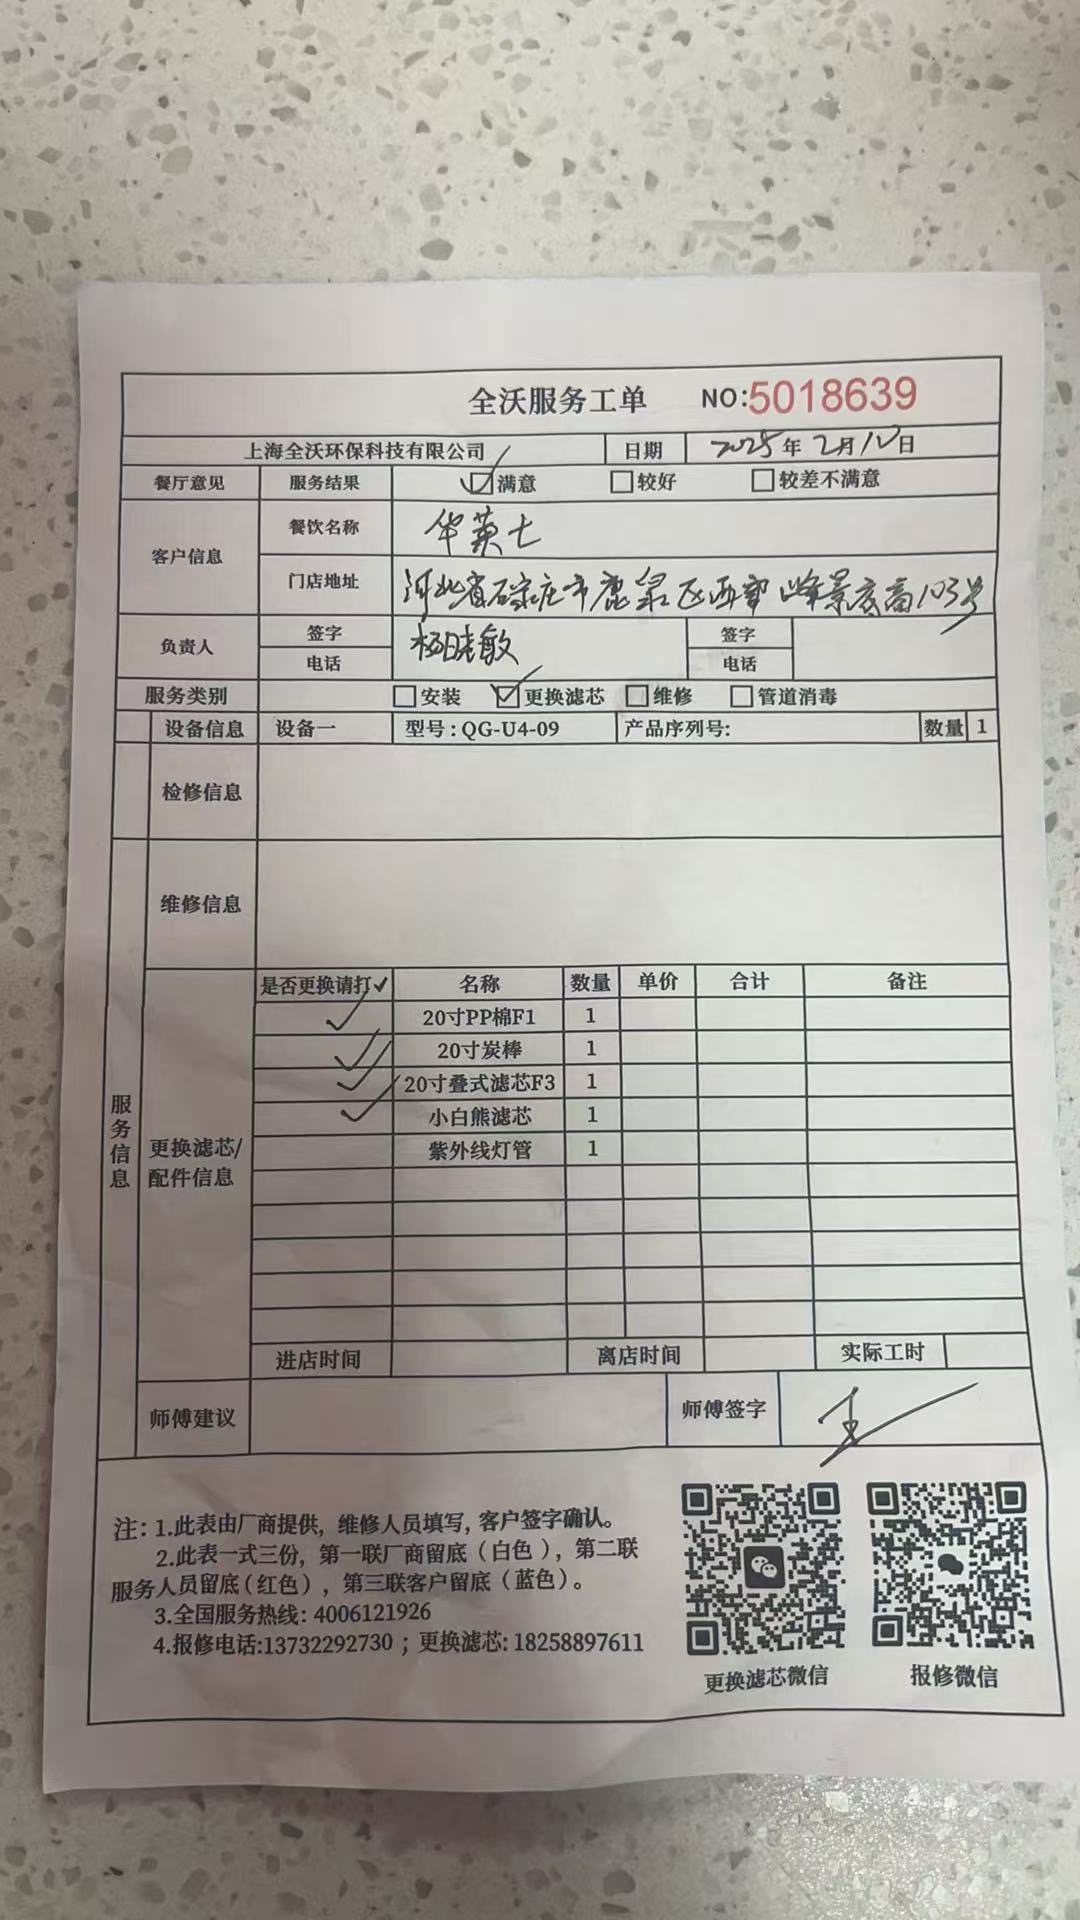 全沃服务工单 NO:5018639
上海全沃环保科技有限公司 日期 2025年2月10日
餐厅意见 服务结果 满意 较好 较差不满意
客户信息 餐饮名称 华莱士
门店地址 河北省石家庄市鹿泉区西 峰景底商103号
负责人 签字 杨晓敏 签字
电话 电话
服务类别 安装 更换滤芯 维修 管道消毒
设备信息 设备一 型号:QG-U4-09 产品序列号: 数量 1
检修信息
维修信息
服务信息
更换滤芯/配件信息
是否更换请打✓ 名称 数量 单价 合计 备注
✓ 20寸PP棉F1 1
✓ 20寸炭棒 1
✓ 20寸叠式滤芯F3 1
✓ 小白熊滤芯 1
紫外线灯管 1
进店时间 离店时间 实际工时
师傅建议 师傅签字 王
注: 1.此表由厂商提供, 维修人员填写, 客户签字确认。
2.此表一式三份, 第一联厂商留底(白色), 第二联
服务人员留底(红色), 第三联客户留底(蓝色)。
3.全国服务热线: 4006121926
4.报修电话:13732292730 ; 更换滤芯: 18258897611
更换滤芯微信 报修微信